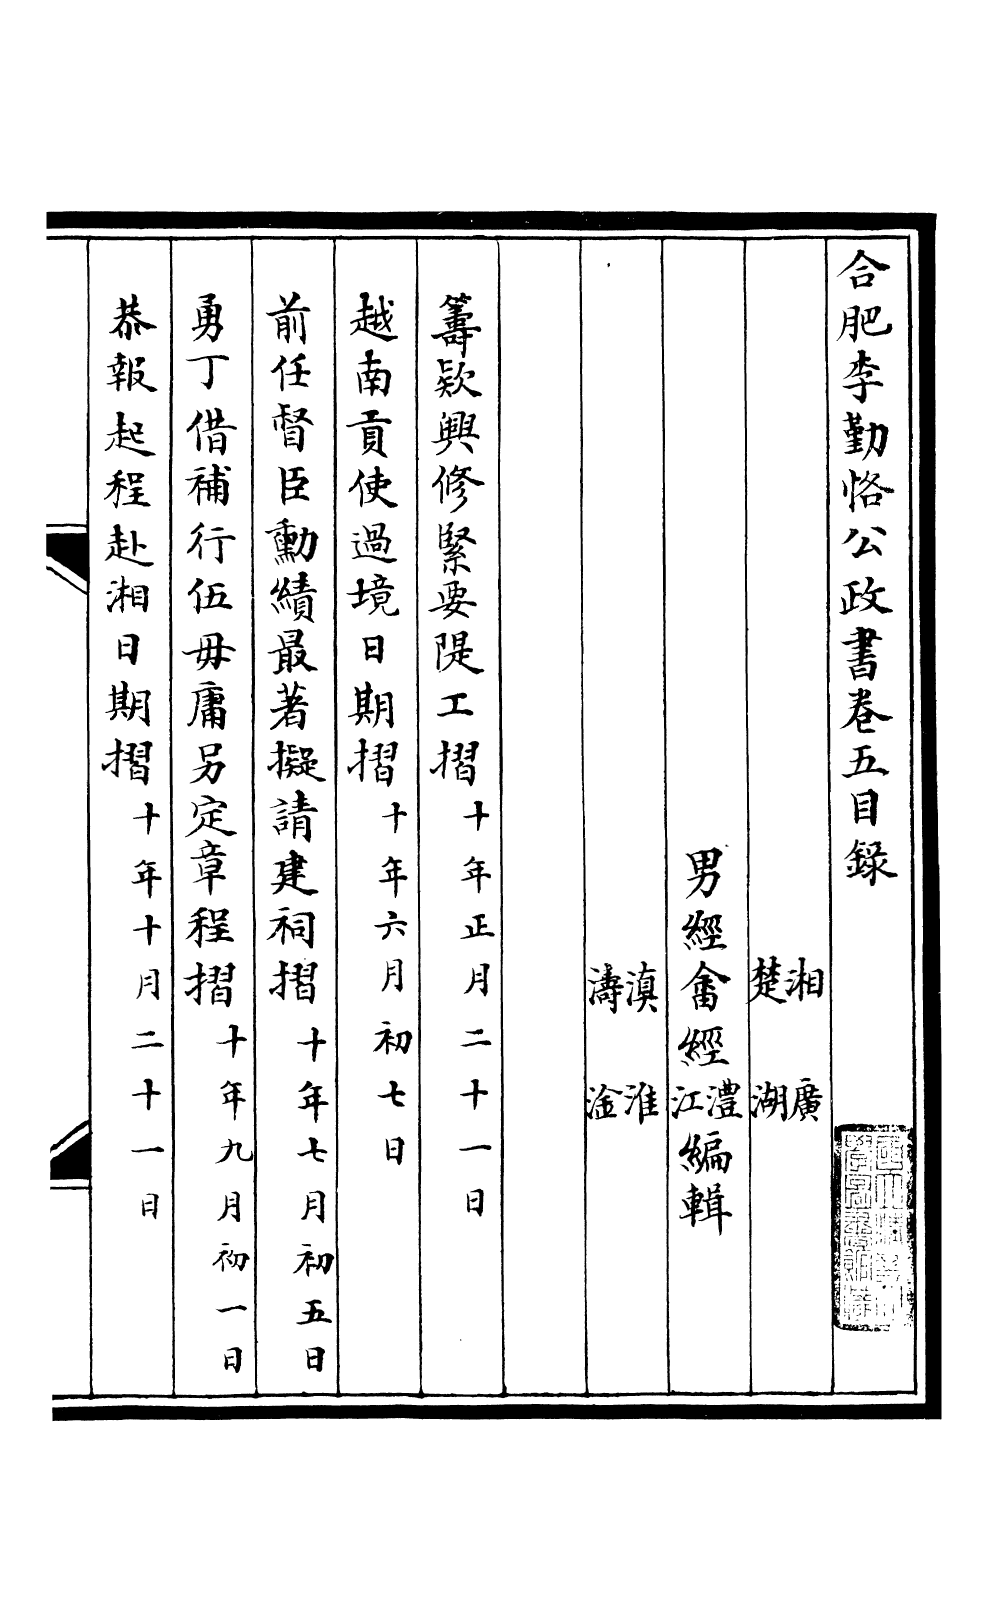 合肥李勤恪公政書卷五目錄
湘　廣
楚　湖
男經畬經澧江編輯
滇　淮
濤　淦
籌欵興修緊要隄工摺　十年正月二十一日
越南貢使過境日期摺　十年六月初七日
前任督臣勳績最著擬請建祠摺　十年七月初五日
勇丁借補行伍毋庸另定章程摺　十年九月初一日
恭報起程赴湘日期摺　十年十月二十一日